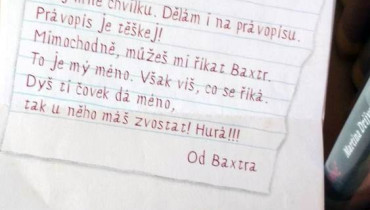 mne chvilku. Dělám i na právopisu.
Právopis je těškej!
Mimochodně, můžeš mi říkat Baxtr.
To je mý méno. Však víš, co se říká.
Dyš ti čovek dá méno,
tak u něho máš zvostat! Hurá!!!
Od Baxtra
Martina